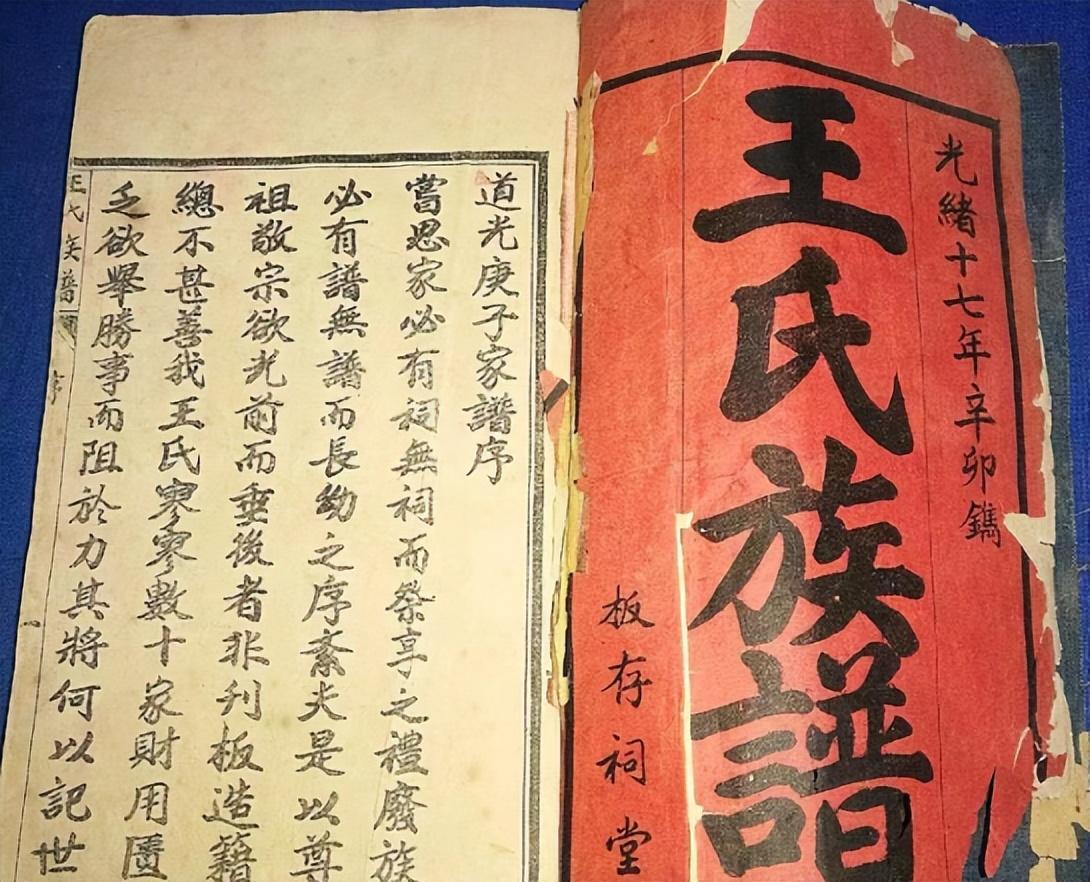 光緒十七年辛卯鐫
王氏族譜
板存祠堂
道光庚子家譜序
嘗思家必有祠無祠而祭享之禮廢族
必有譜無譜而長幼之序紊夫是以尊
祖敬宗欲光前而垂後者非刊板造籍
總不甚善我王氏寥寥數十家財用匱
乏欲舉勝事而阻於力其將何以記世
王氏族譜
序